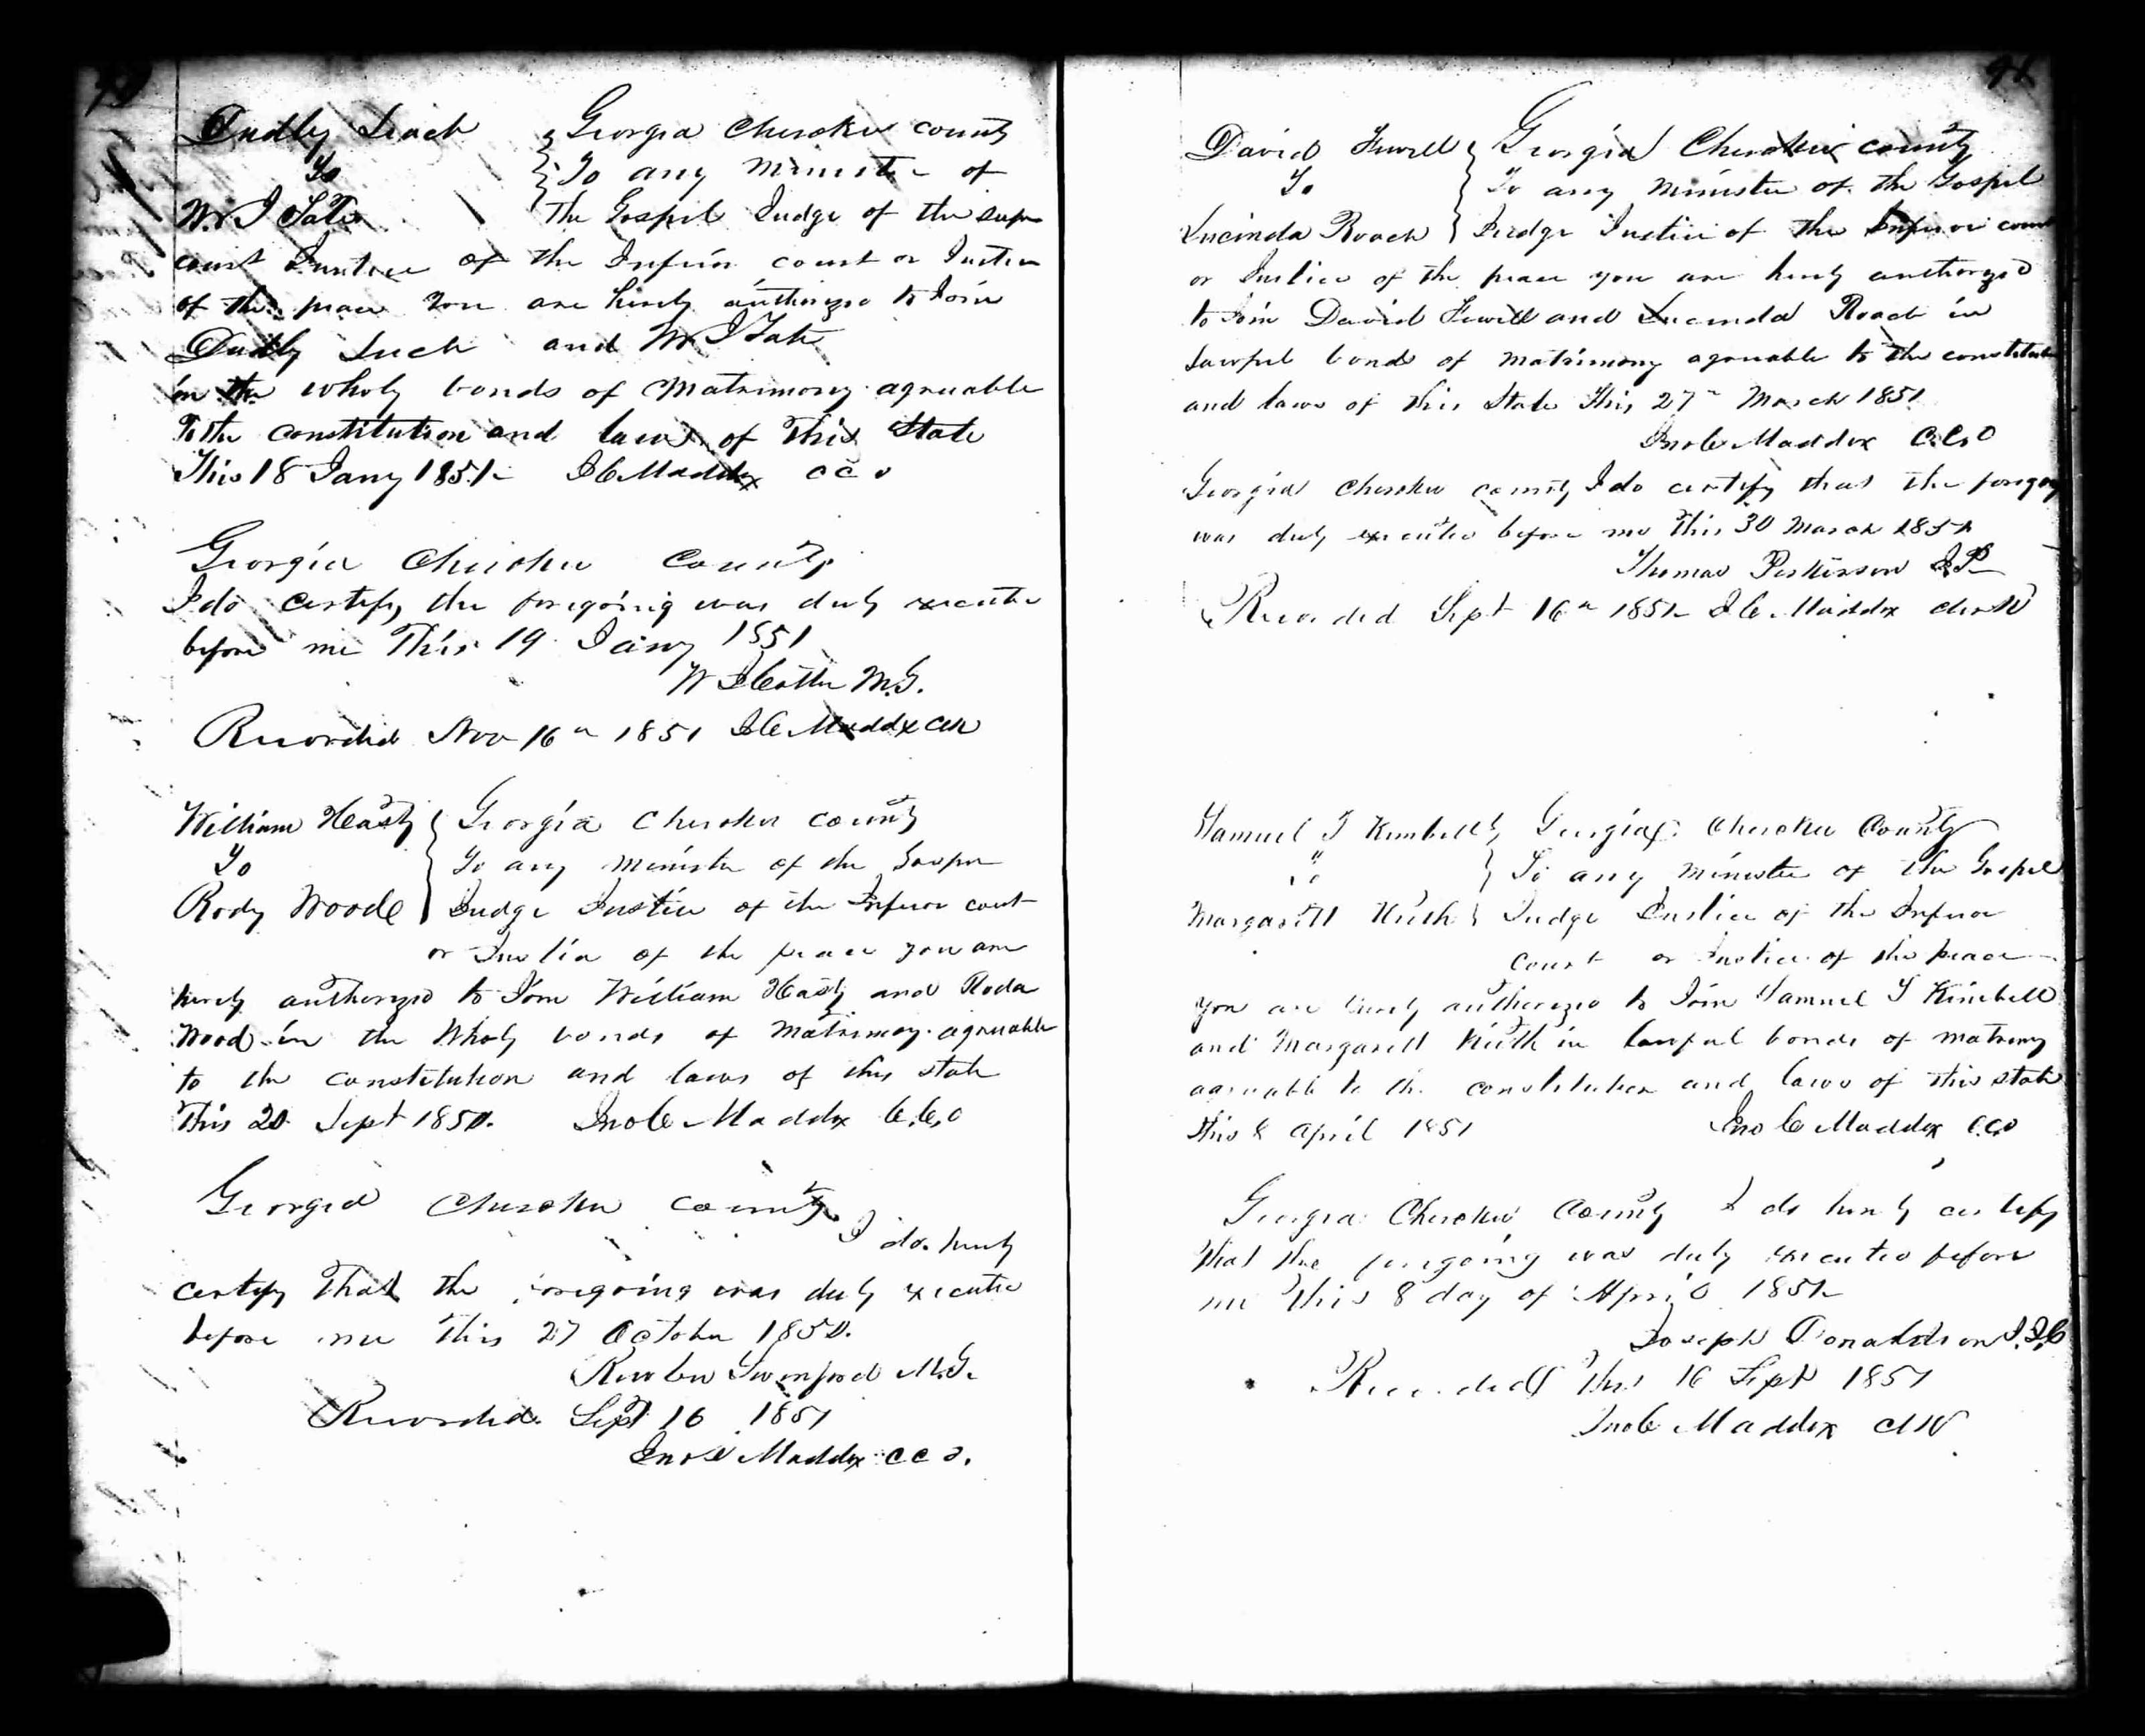 Dudly Leach Georgia Cherokee county
To To any Minister of
W. J Tate the Gospel Judge of the supr
court Justice of the Inferior court or Justice
of the peace you are hereby authorize to Join
Dudly Leach and W J Tate
in the wholy bonds of Matrimony agreeable
To the constitution and laws of this State
This 18 Jany 1851 J C Maddox c c o
Georgia Cherokee County
I do certify the foregoing was duly execute
before me This 19 Jany 1851
M.G.
Recorded Nov 16 1851 J C Maddox clk
William Hasty Georgia Cherokee county
To To any Minister of the Gospel
Rody Woode Judge Justice of the Inferior court
or Justice of the peace you are
hereby authorized to Join William Hasty and Roda
Wood in the Wholy bonds of Matrimony agreeable
to the constitution and laws of this state
This 20 Sept 1850. Jno C Maddox C.C.O
Georgia Cherokee county
I do hereby
certify That the foregoing was duly execute
before me this 27 October 1850.
M.G.
Recorded Sept 16 1851
Jno C Maddox c c o.
David Georgia Cherokee county
To To any Minister of the Gospel
Lucinda Roach Judge Justice of the Inferior court
or Justice of the peace you are hereby authorized
to Join David and Lucinda Roach in
Lawful bonds of matrimony agreeable to the constitution
and laws of this State This 27 March 1851
Jno C Maddox C.C.O
Georgia Cherokee county I do certify that the foregoing
was duly executed before me this 30 March 1851
Thomas Perkinson J.P
Recorded Sept 16 1851 J C Maddox clerk
Samuel T Kimbell Georgia Cherokee County
To To any minister of the Gospel
Margarett Keith Judge Justice of the Inferior
Court or Justice of the peace
you are hereby authorized to Join Samuel T Kimbell
and Margarett Keith in lawful bonds of matrimony
agreeable to the constitution and laws of this state
this 8 April 1851 Jno C Maddox C.C.O
Georgia Cherokee County I do hereby certify
that the foregoing was duly executed before
me this 8 day of April 1851
Joseph Donaldson J.I.C
Recorded This 16 Sept 1851
Jno C Maddox Clk